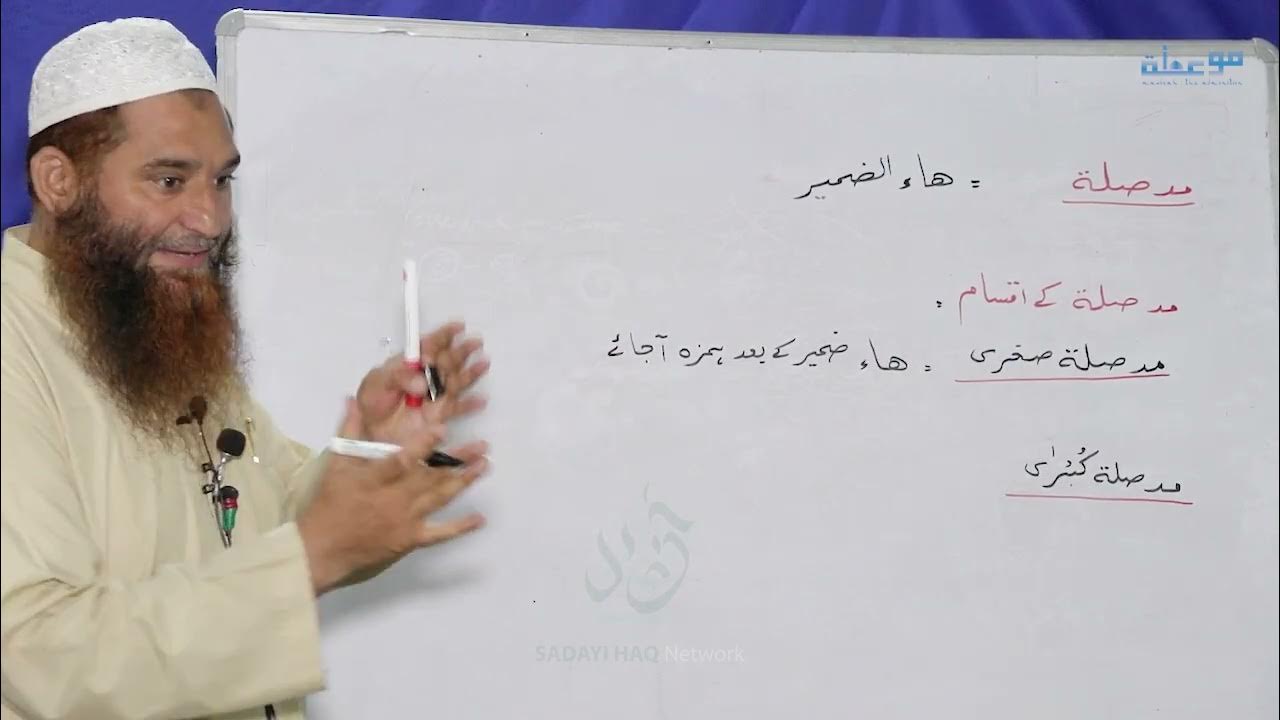 موعظة
مد صلة = هاء الضمير
مد صلة کے اقسام :
مد صلة صغری = هاء ضمیر کے بعد ہمزہ آجائے
مد صلة کُبْرٰی
SADAYI HAQ Network